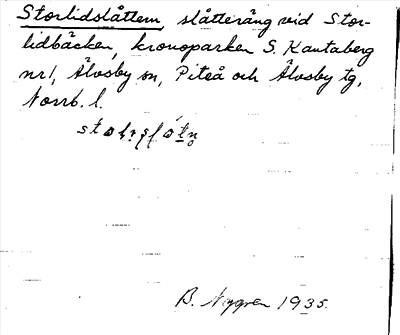 Storlidslåttern, slåtteräng vid Stor-
lidbäcken, kronoparken S. Kantaberg
nr 1, Älvsby sn, Piteå och Älvsby tg,
Norrb. l.
B. Nygren 1935.